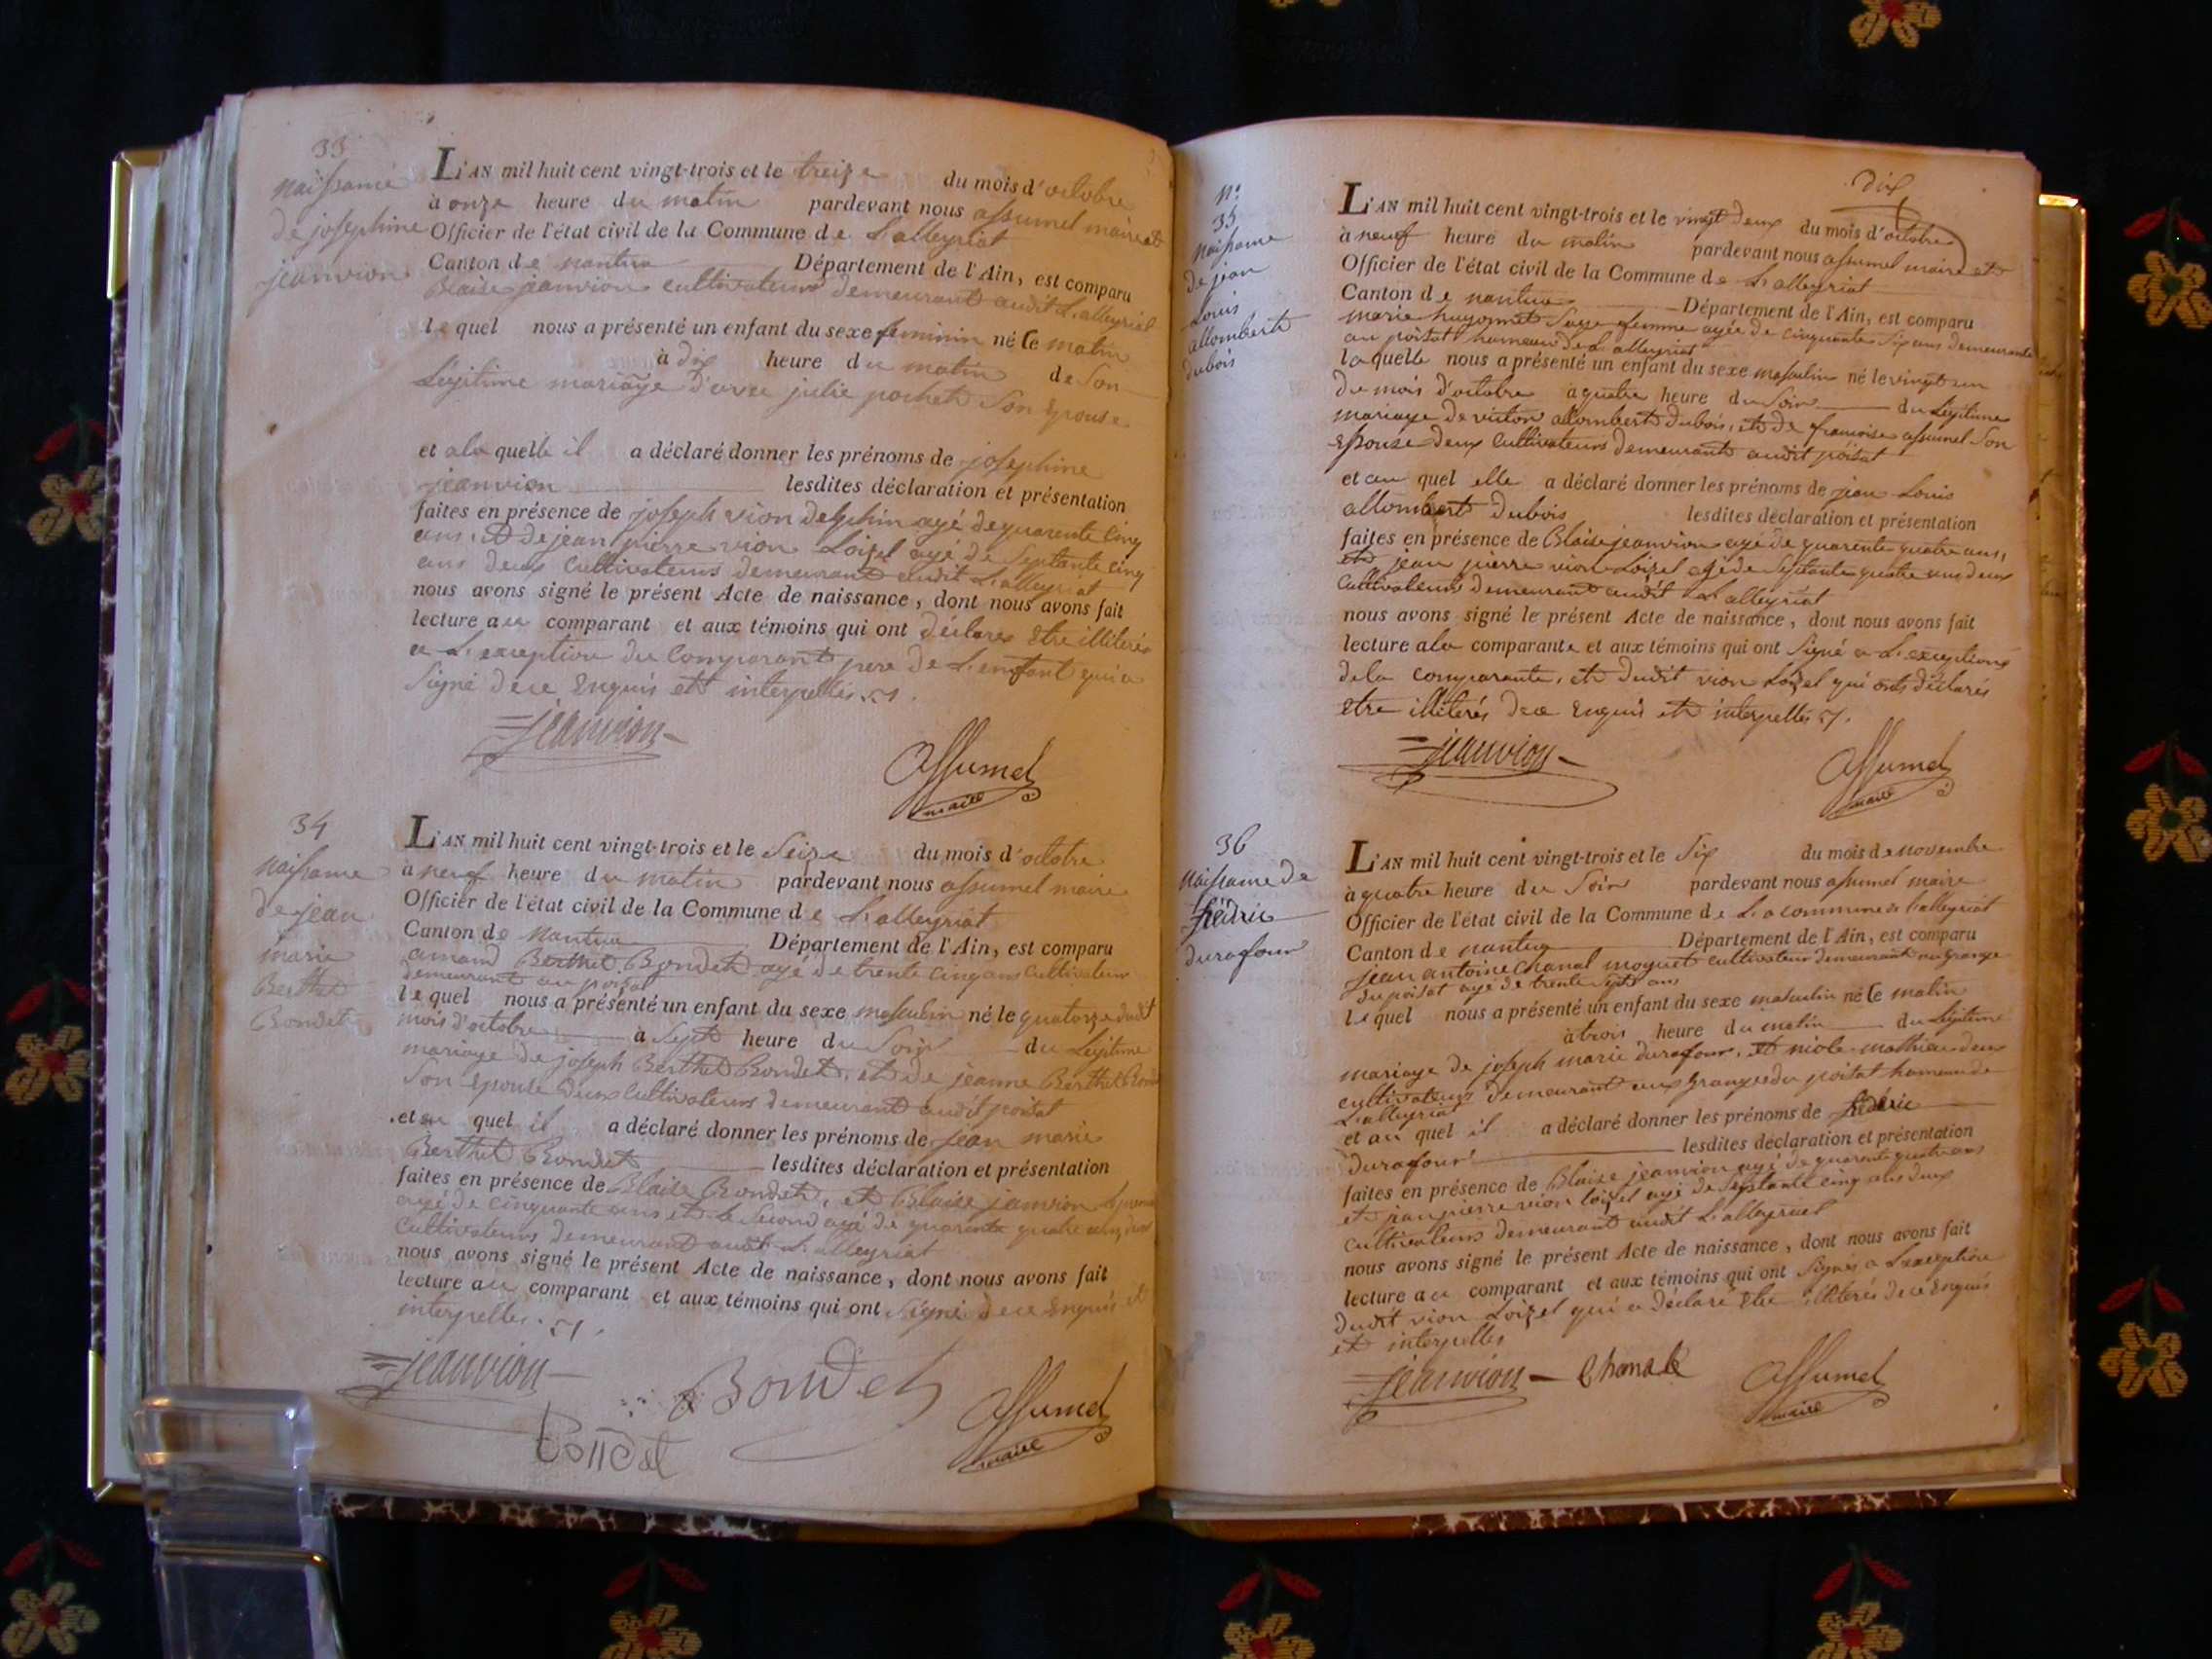 33
naissance
de josephine
jeanvion
L'AN mil huit cent vingt-trois et le treize du mois d'octobre
à onze heure du matin pardevant nous assumel maire et
Officier de l'état civil de la Commune de L'alleyriat
Canton de nantua Département de l'Ain, est comparu
Blaise jeanvion cultivateur demeurant audit L'alleyriat
lequel nous a présenté un enfant du sexe feminin né le matin
à dix heure du matin de Son
Légitime mariage d'avec julie pochet Son Epouse
et a la quelle il a déclaré donner les prénoms de josephine
jeanvion lesdites déclaration et présentation
faites en présence de joseph vion delphin agé de quarente cinq
ans, et de jean pierre vion Loizel agé de Septante cinq
ans deux Cultivateurs demeurant audit L'alleyriat
nous avons signé le présent Acte de naissance, dont nous avons fait
lecture au comparant et aux témoins qui ont déclarés Etre illiterés
a L'exception du Comparant pere de L'enfant qui a
Signé de ce Enquis et interpellés
jeanvion
assumel
maire
34
naissance
de jean
marie
Berthet
Bondet
L'AN mil huit cent vingt-trois et le Seize du mois d'octobre
à neuf heure du matin pardevant nous assumel maire
Officier de l'état civil de la Commune de L'alleyriat
Canton de Nantua Département de l'Ain, est comparu
amand Berthet Bondet agé de trente cinq ans cultivateur
demeurant au poizat
lequel nous a présenté un enfant du sexe masculin né le quatorze dudt
mois d'octobre à Sept heure du Soir du Légitime
mariage de joseph Berthet Bondet, et de jeanne Berthet Bond
Son Epouse deux Cultivateurs demeurant audit poizat
et au quel il a déclaré donner les prénoms de jean marie
Berthet Bondet lesdites déclaration et présentation
faites en présence de Blaise Bondet, et Blaise jeanvion le premier
agé de cinquante ans et le Second agé de quarante quatre ans, deux
Cultivateurs demeurant audit L'alleyriat
nous avons signé le présent Acte de naissance, dont nous avons fait
lecture au comparant et aux témoins qui ont Signé de ce Enquis et
interpellés
jeanvion
Bondet
Bondet
assumel
maire
dix
N°
35
naissance
de jean
Louis
allombert
dubois
L'AN mil huit cent vingt-trois et le vingt deux du mois d'octobre
à neuf heure du matin pardevant nous assumel maire et
Officier de l'état civil de la Commune de L'alleyriat
Canton de nantua Département de l'Ain, est comparu
marie hugonnet Sage femme agée de cinquante Six ans demeurante
au poizat hameau de L'alleyriat
laquelle nous a présenté un enfant du sexe masculin né le vingt un
du mois d'octobre a quatre heure du Soir du Légitime
mariage de victor allombert dubois, et de francoise assumel Son
Epouse deux Cultivateurs demeurant audit poizat
et au quel elle a déclaré donner les prénoms de jean Louis
allombert dubois lesdites déclaration et présentation
faites en présence de Blaise jeanvion agé de quarente quatre ans,
et jean pierre vion Loizel agé de Septante quatre ans deux
Cultivateurs demeurant audit L'alleyriat
nous avons signé le présent Acte de naissance, dont nous avons fait
lecture a la comparante et aux témoins qui ont Signé a L'exception
de la comparante, et dudit vion Loizel qui ont déclarés
Etre illiterés de ce Enquis et interpellés
jeanvion
assumel
maire
36
Naissance de
frédéric
durafour
L'AN mil huit cent vingt-trois et le Six du mois de novembre
à quatre heure du Soir pardevant nous assumel maire
Officier de l'état civil de la Commune de La commune de L'alleyriat
Canton de nantua Département de l'Ain, est comparu
jean antoine chanal moquet cultivateur demeurant au grange
du poizat agé de trente Sept ans
lequel nous a présenté un enfant du sexe masculin né le matin
à trois heure du matin du Légitime
mariage de joseph marie durafour, et nicole mathieu deux
cultivateurs demeurant aux granges du poizat hameau de
L'alleyriat
et au quel il a déclaré donner les prénoms de frédéric
durafour lesdites déclaration et présentation
faites en présence de Blaise jeanvion agé de quarente quatre ans
et jean pierre vion loizel agé de Septante cinq ans deux
cultivateurs demeurant audit L'alleyriat
nous avons signé le présent Acte de naissance, dont nous avons fait
lecture au comparant et aux témoins qui ont Signés a L'exception
dudit vion Loizel qui a déclaré Etre illiterés de ce Enquis
et interpellés
jeanvion
Chanal
assumel
maire